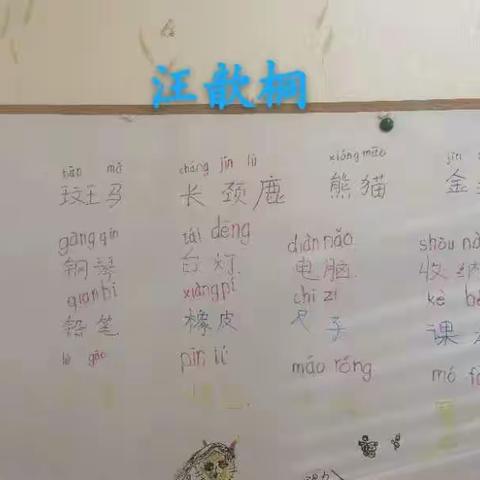 汪歆桐
bān mǎ cháng jǐn lù xióng māo jīn
斑马 长颈鹿 熊猫 金
gāng qín tái dēng diàn nǎo shōu nà
钢琴 台灯 电脑 收纳
qianbi xiàngpí chǐ zi kè
铅笔 橡皮 尺子 课
lè gāo pīn máo róng mó